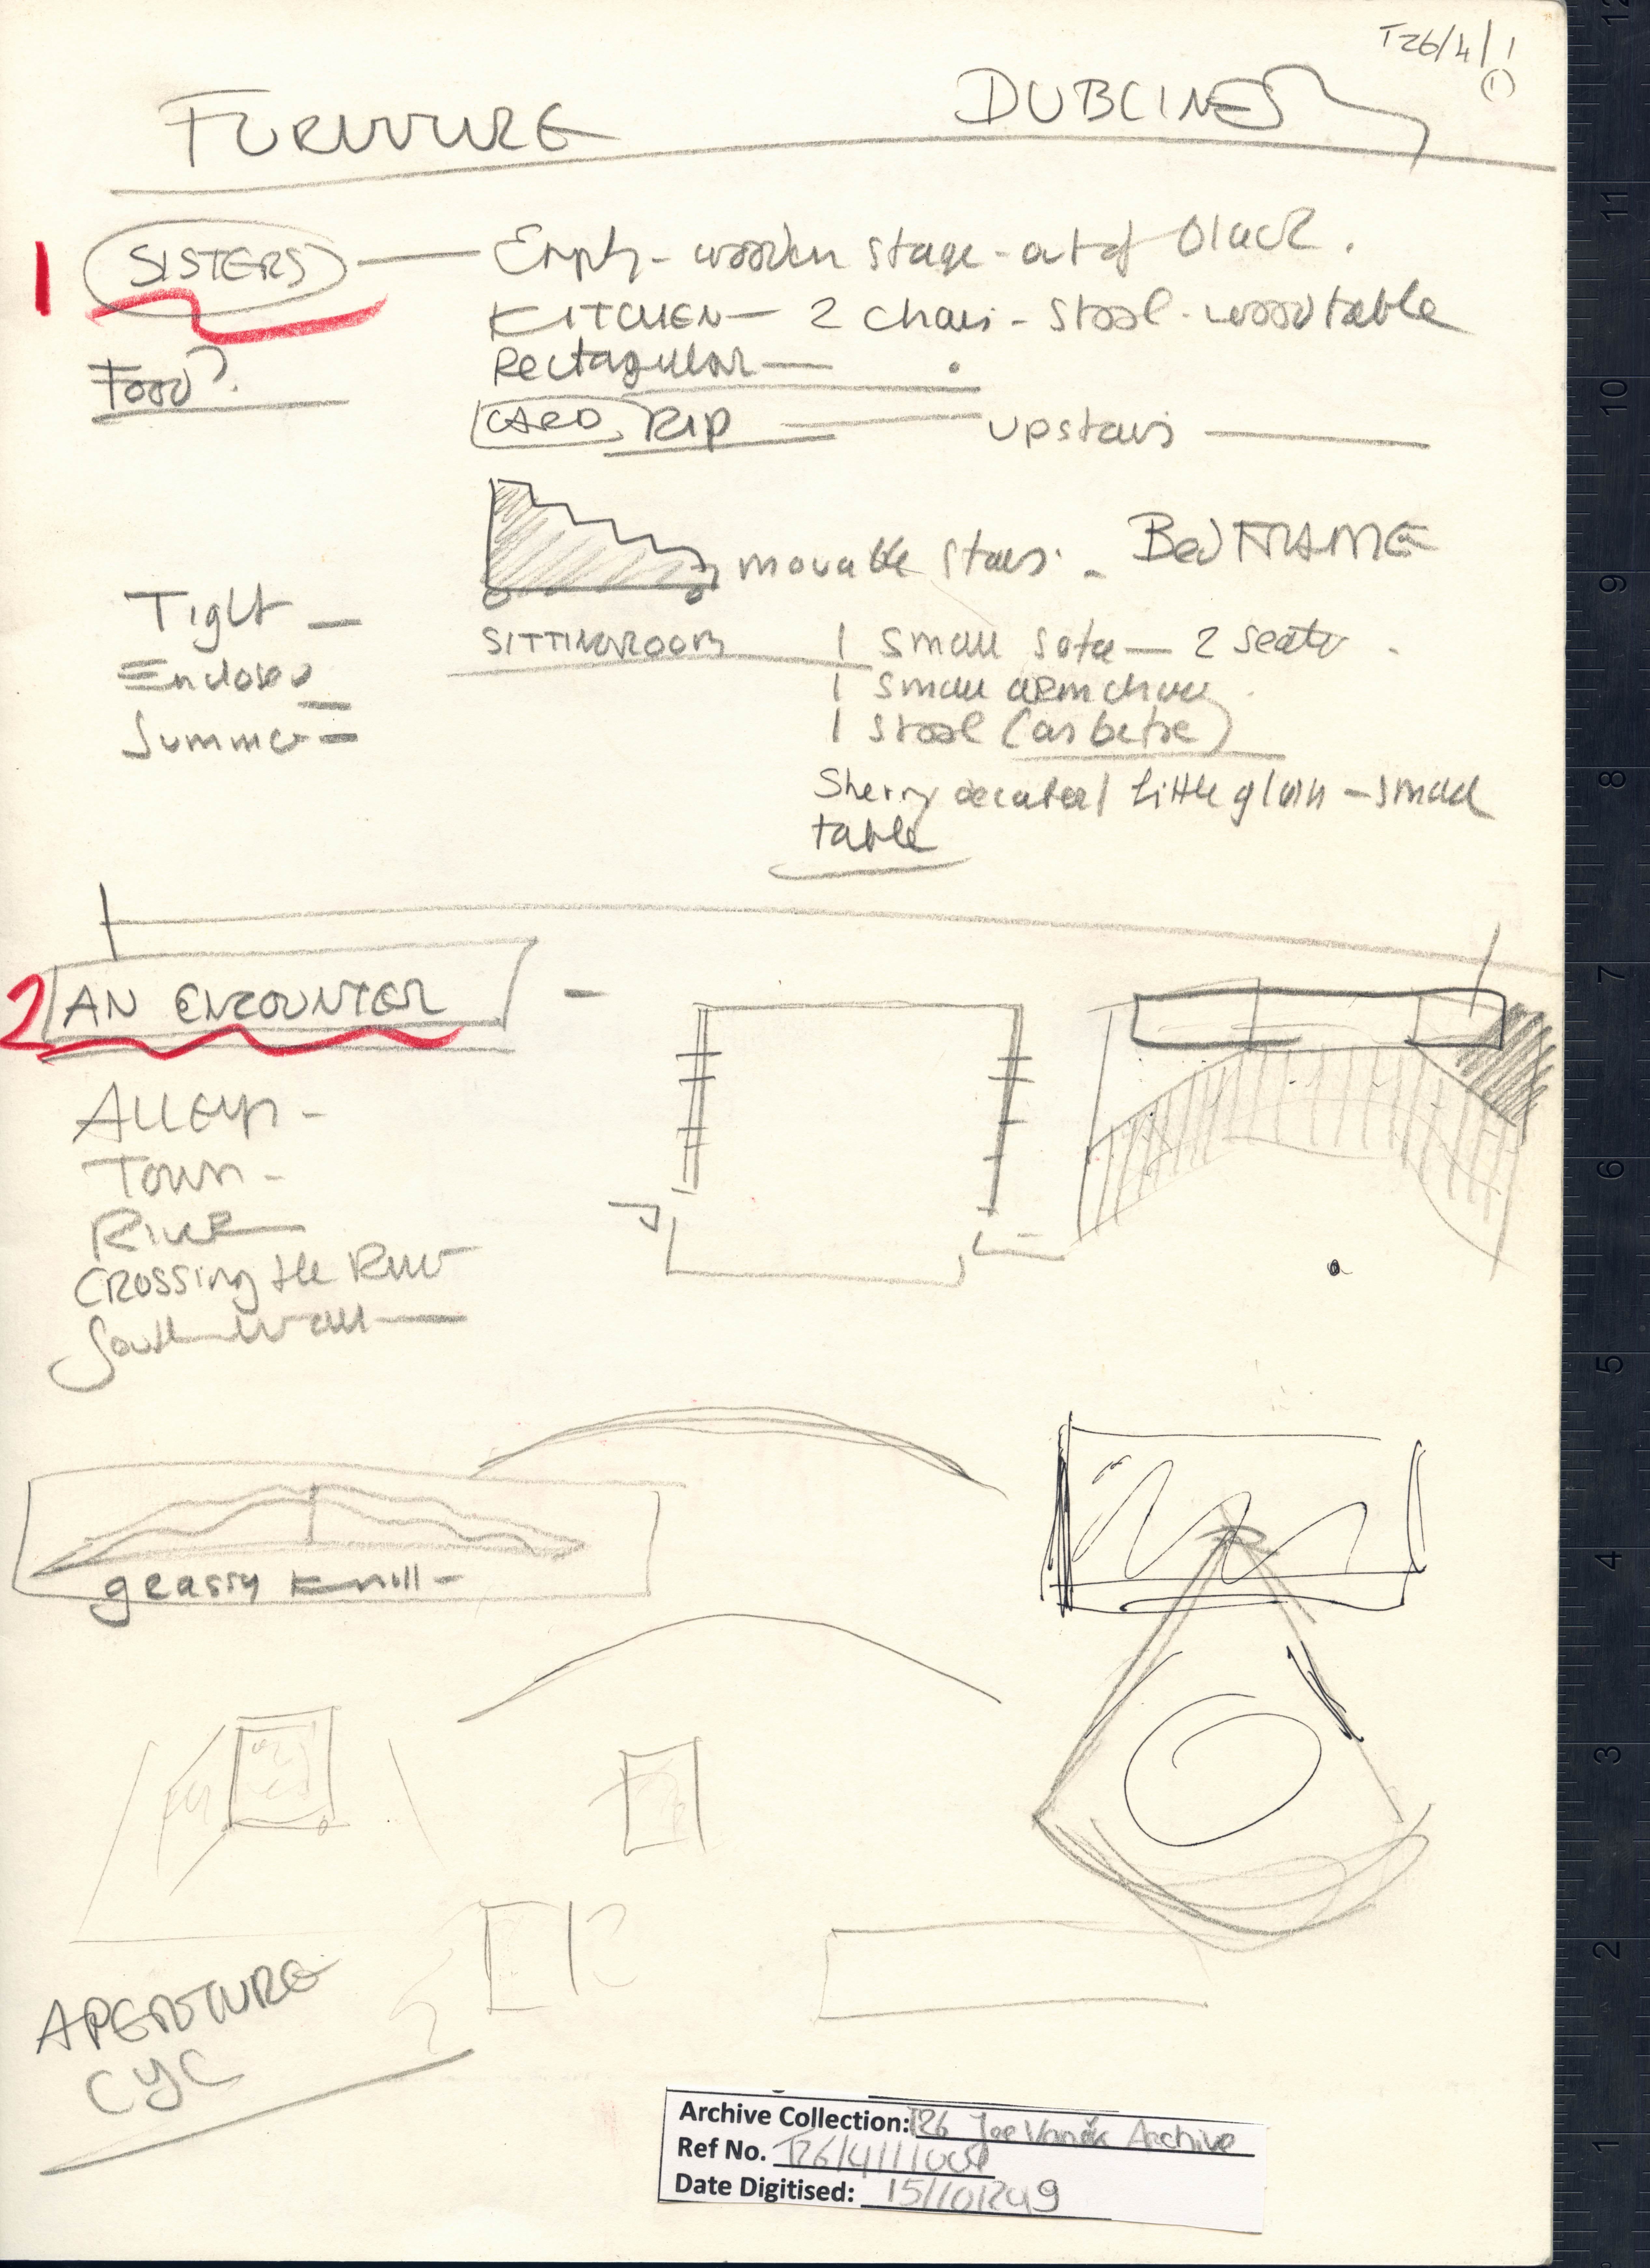 T26/4/1
(1)
FURNITURE
DUBLINERS
1
SISTERS
Empty - wooden stage - out of black.
KITCHEN - 2 chairs - Stool - wood table
Rectagular
Food?
CARD RIP
upstairs
movable stairs. - Bed FRAME
Tight
Enclosed
Summer
SITTINGROOM
1 small sofa - 2 seater.
1 small armchair
1 stool (as before)
Sherry decanter / little glass - small
table
2
AN ENCOUNTER -
Alleys -
Town -
River
CROSSING the River
South Wall
grassy knoll -
APERTURE
CYC
Archive Collection: T26 Joe Vaněk Archive
Ref No. T26/4/1/1
Date Digitised: 15/10/2019